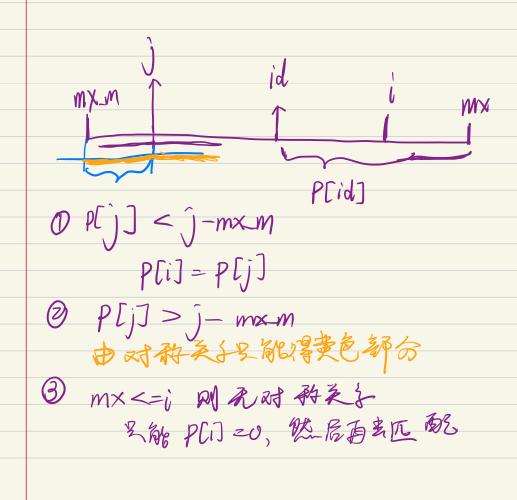 j
id
i
mx_m
mx
P[id]
① P[j] < j-mx_m
P[i] = P[j]
② P[j] > j- mx_m
由对称关系只能得黄色部分
③ mx<=i 则无对称关系
只能 P[i]=0, 然后再去匹配